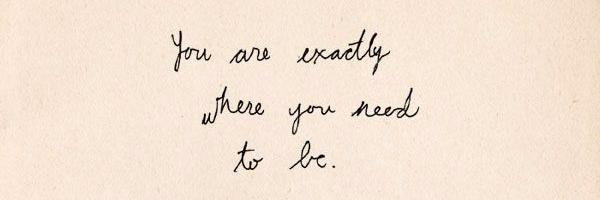 You are exactly
where you need
to be.